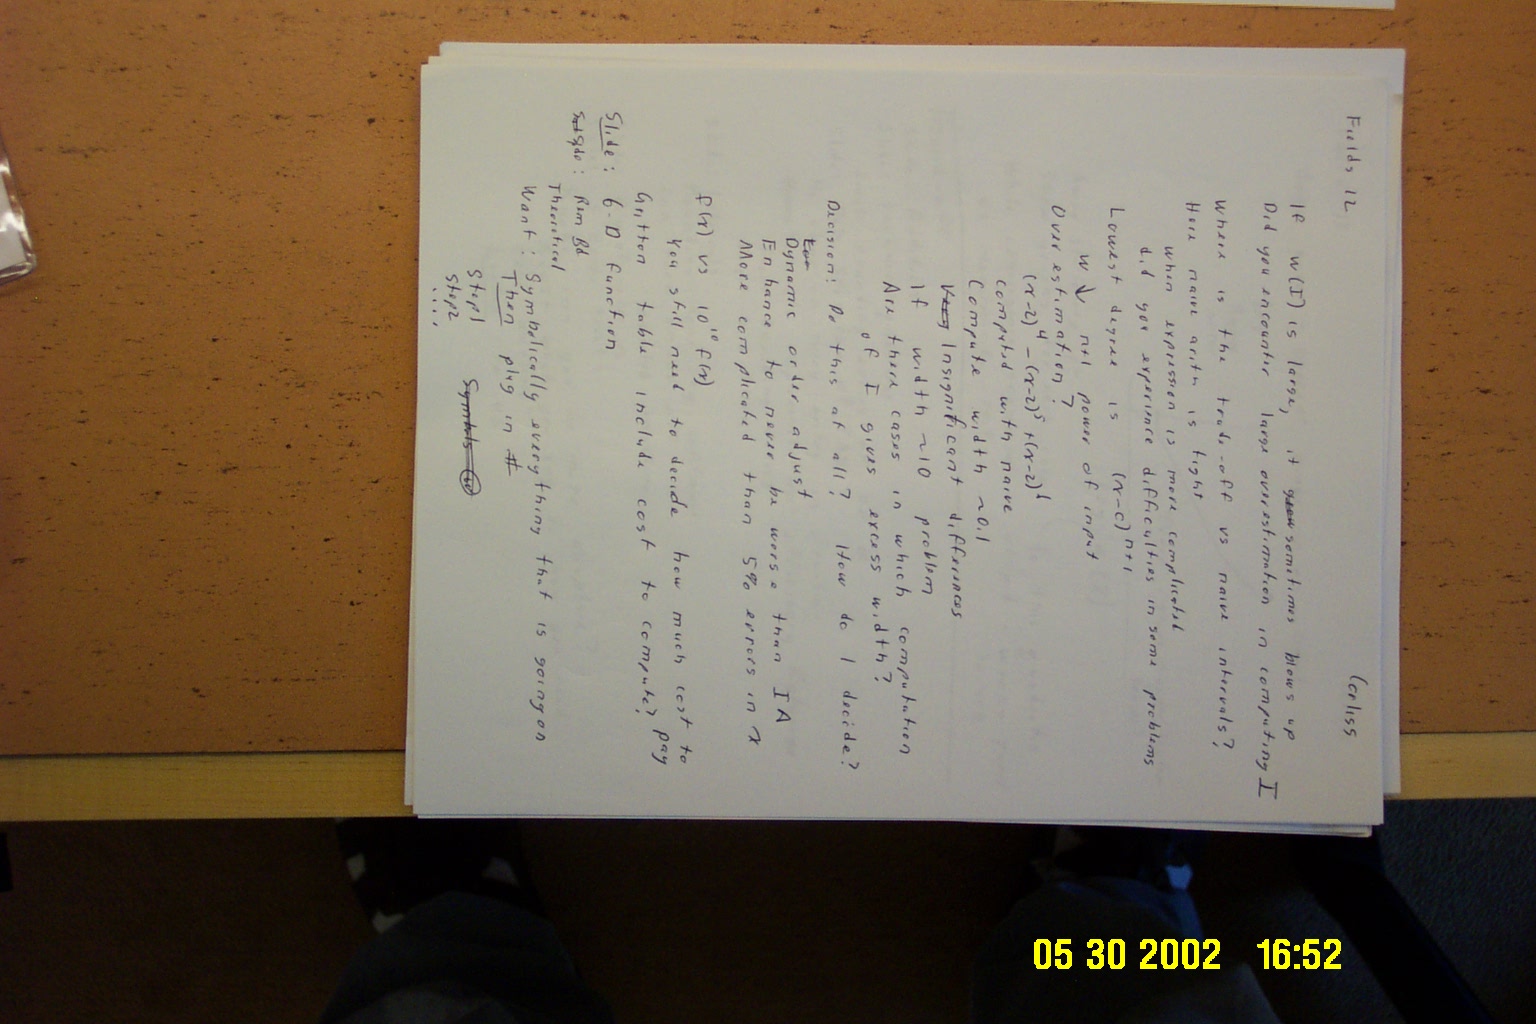 Fields 12 Corliss
If w(I) is large, it sometimes blows up
Did you encounter large overestimation in computing I
Where is the trade-off vs naive intervals?
Here naive arith is tight
When expression is more complicated
did you experience difficulties in some problems
Lowest degree is (x-c)^n+1
w ↓ n+1 power of input
Overestimation?
(x-2)^4 - (x-2)^5 + (x-2)^6
computed with naive
Compute width ~0.1
Very Insignificant differences
If width ~10 problem
Are there cases in which computation
of I gives excess width?
Decision: Do this at all? How do I decide?
Dynamic order adjust
Enhance to never be worse than IA
More complicated than 5% errors in x
f(x) vs 10^10 f(x)
You still need to decide how much cost to pay
Gritton table include cost to compute?
Slide: 6-D function
Rem Bd
Theoretical
Want: Symbolically everything that is going on
Then plug in #
Step 1
Step 2
....
05 30 2002 16:52